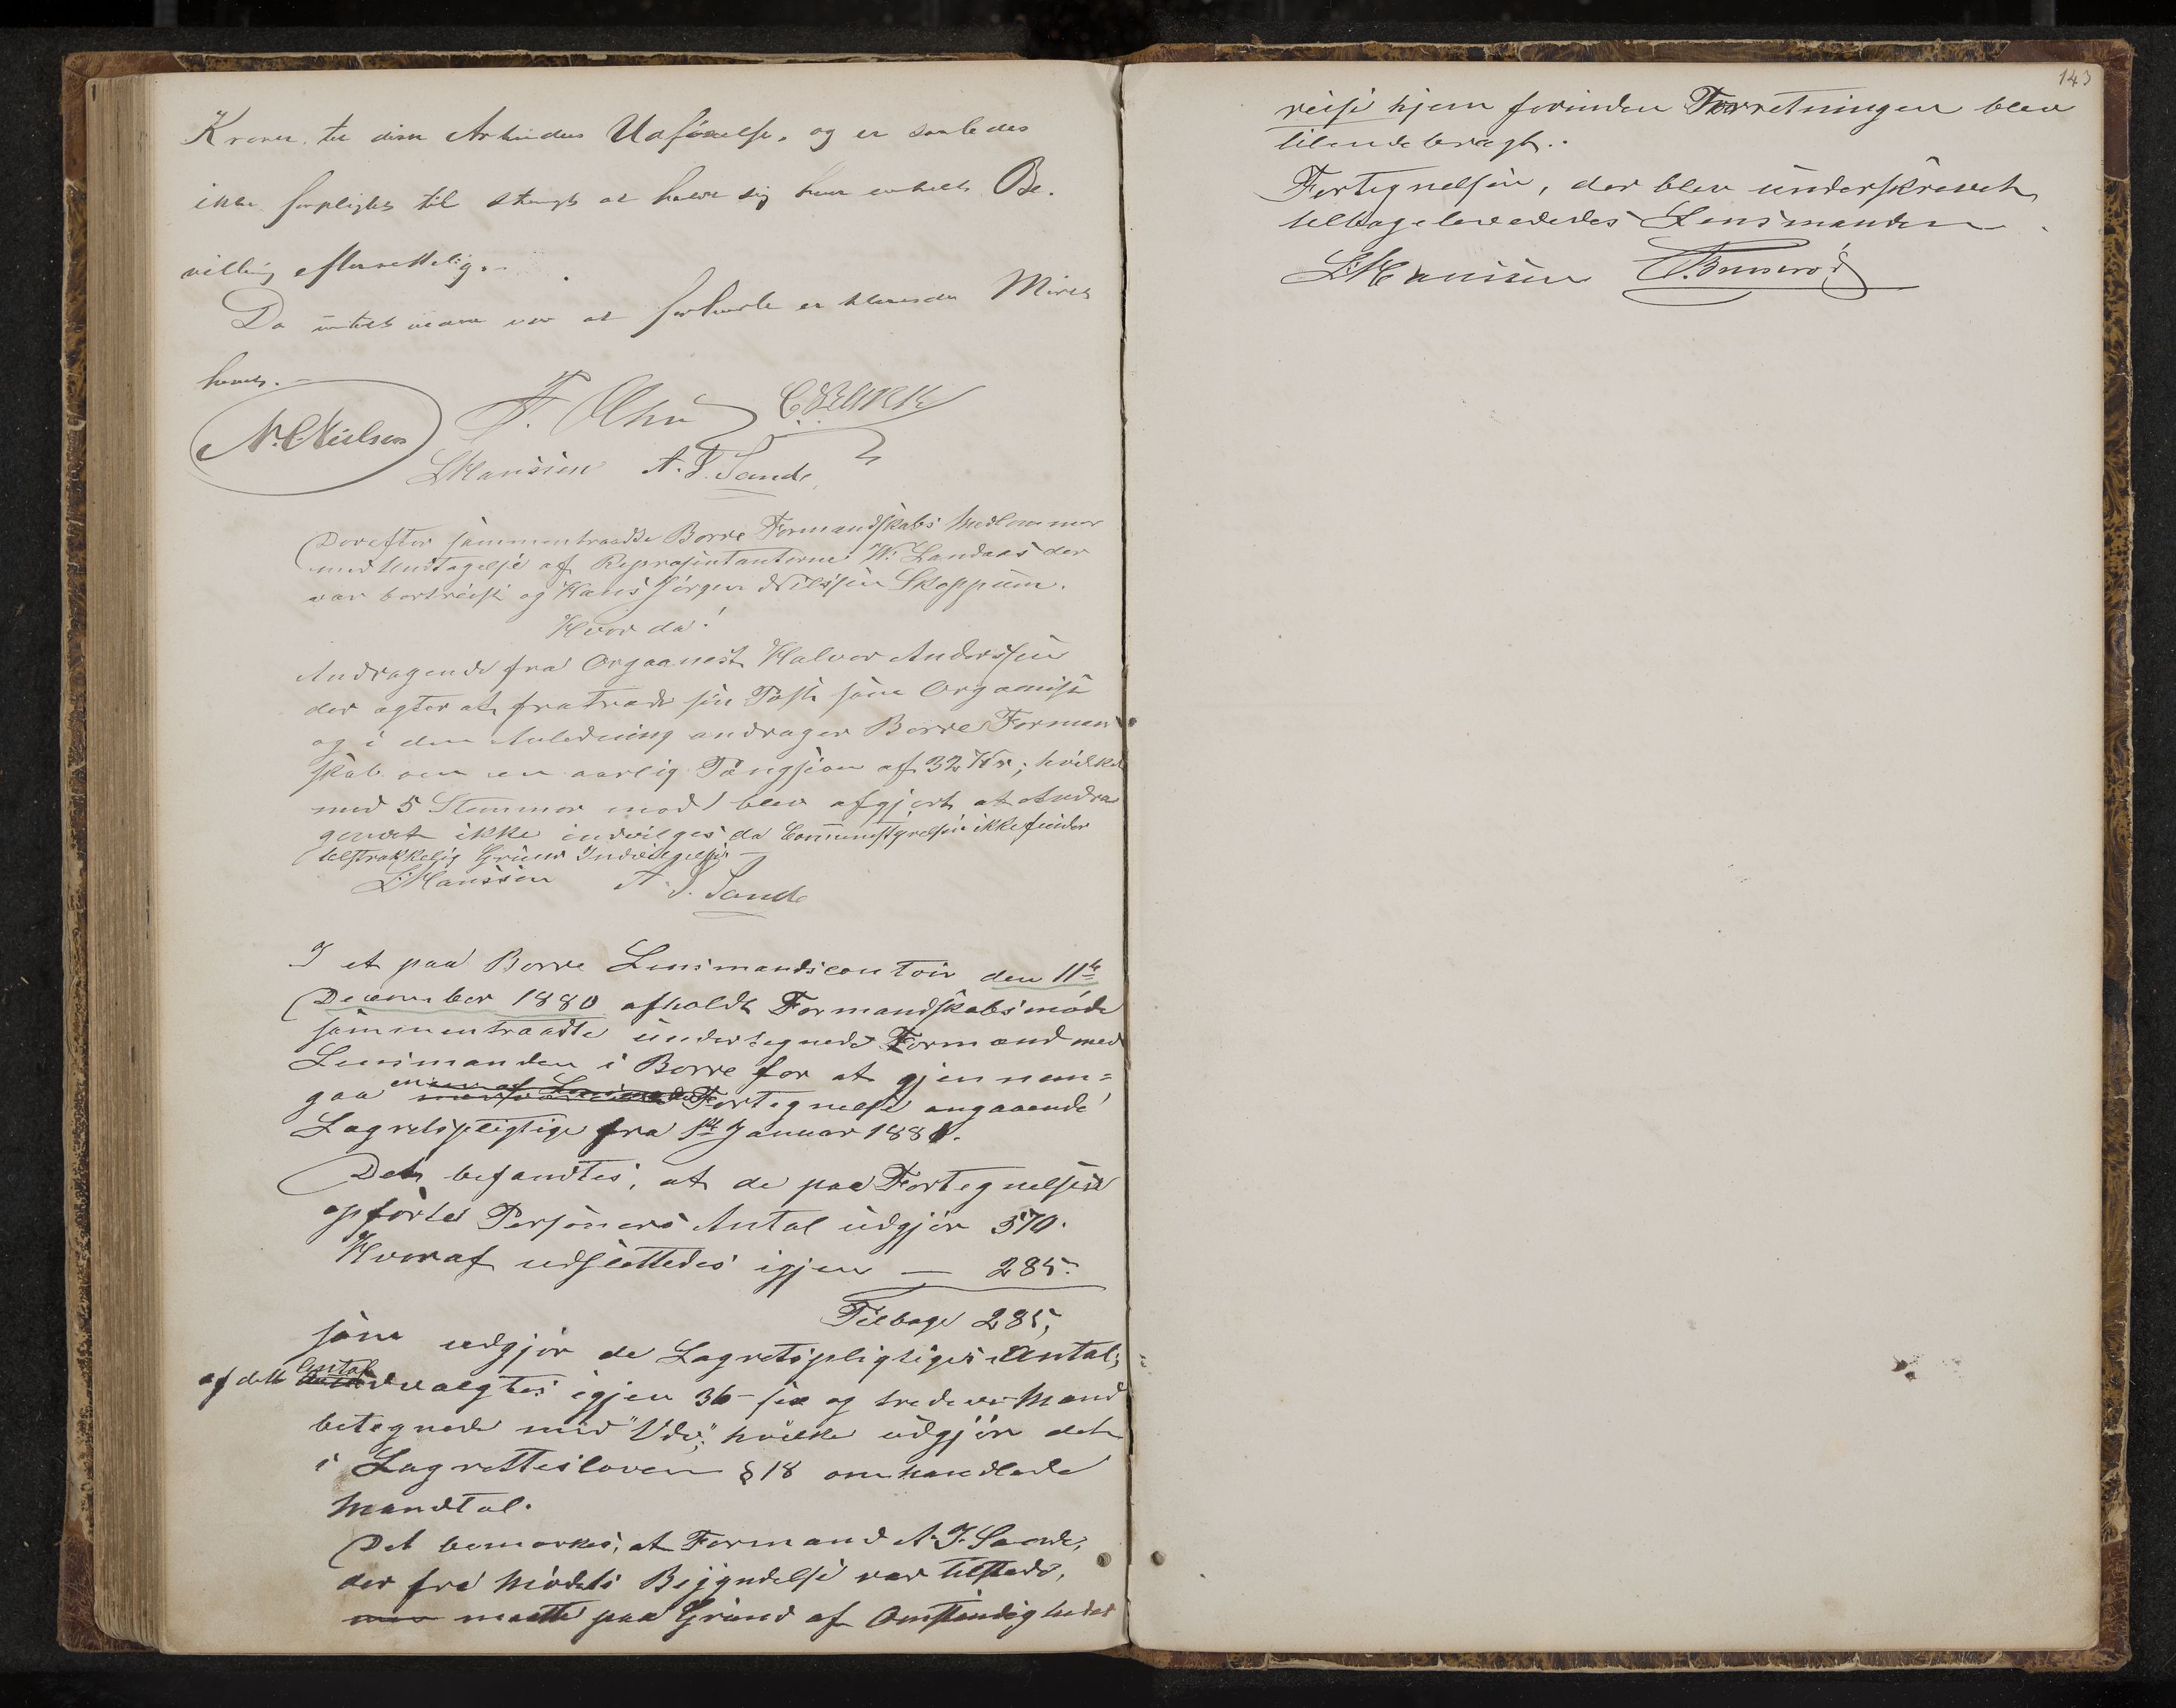 Kroner til disse Arbeiders Udførelse, og er saaledes
ikke forpligtet til strengt at holde sig hver enkelt Be-
villing efterrettelig.
Da intet mere var at forhandle er
hævet.
N. C. Nielsen F. Olsen
L Hanssen A. J. Sande
Derefter sammentraadte Borre Formandskabs Medlemmer
med Undtagelse af Repræsentanterne W. Landaas der
var bortreist og Hans Jørgen Nilssen Skoppum.
Hvor da:
Andragende fra Organist Halvor Anderssen
der agter at fratræde sin Post som Organist
og i den Anledning andrager Borre Forman
skab om en aarlig Pangsion af 32 Kr; hvilket
med 5 Stemmer mod 1 blev afgjort at Andra
gendet ikke indvilges da Communestyrelsen ikke finder
tilstrækkelig Grund Indvilgelse
L Hanssen A. J. Sande
I et paa Borre Lensmandscontoir den 11te
December 1880 afholdt Formandskabsmøde
sammentraadte undertegnede Formænd med
Lensmanden i Borre for at gjennem=
gaa en Fortegnelse angaaende
Lagretspligtige fra 1ste Januar 1881.
Det befandtes, at de paa Fortegnelsen
opførte Personers Antal udgjør 570.
Hvoraf udslettedes igjen — 285.
Tilbage 285,
som udgjør de Lagretspligtiges Antal;
af dette Antal udvalgtes igjen 36 - sex og tredive Mænd
betegnede med "Udv." hvilke udgjør det
i Lagrettesloven § 18 omhandlede
Mandtal.
Det bemærkes, at Formand A. J. Sande,
der fra Mødets Begyndelse var tilstede,
men maatte paa Grund af Omstændigheder
143
reise hjem forinden Forretningen blev
tilendebragt.
Fortegnelsen, der blev underskrevet,
tilbageleveredes Lensmanden.
L Hanssen